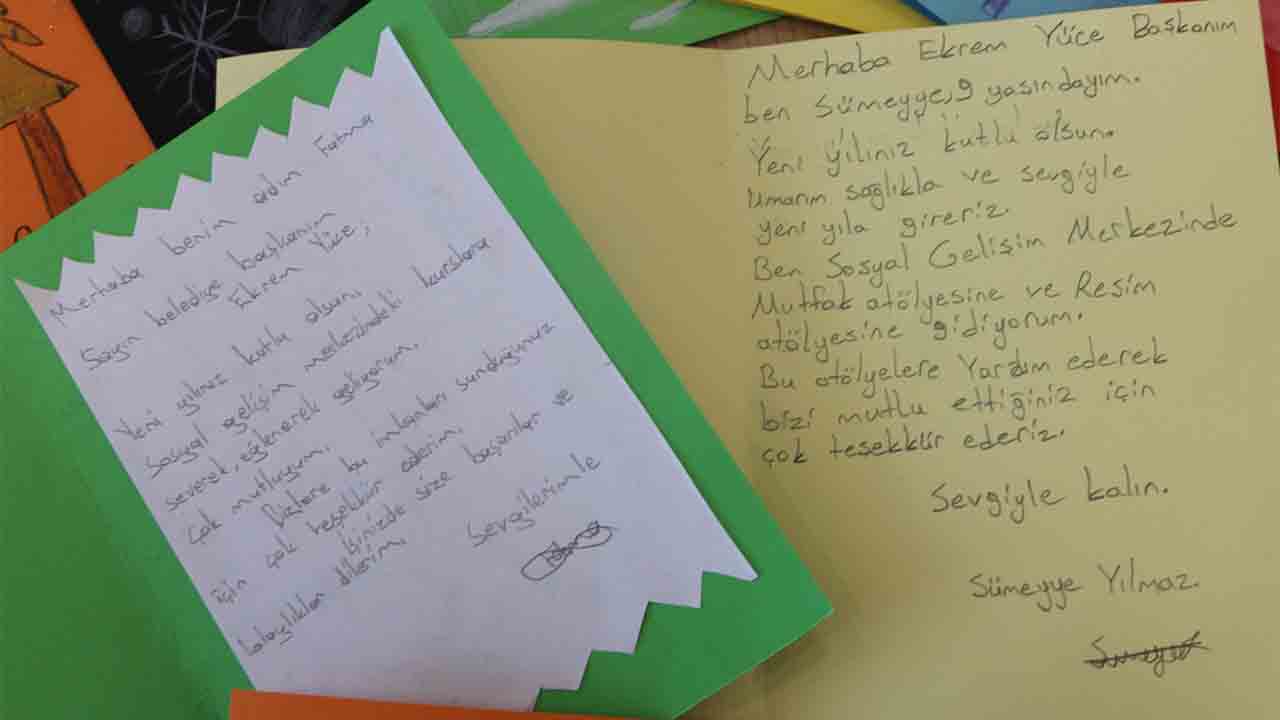 Merhaba benim adım Fatma
Sayın belediye başkanım
Ekrem Yüce,
Yeni yılınız kutlu olsun.
Sosyal gelişim merkezindeki kurslara
severek, eğlenerek geliyorum.
Çok mutluyum.
Bizlere bu imkanları sunduğunuz
için çok teşekkür ederim.
İşinizde size başarılar ve
kolaylıklar dilerim.
Sevgilerimle
Merhaba Ekrem Yüce Başkanım
ben Sümeyye,9 yaşındayım.
Yeni yılınız kutlu olsun.
Umarım sağlıkla ve sevgiyle
yeni yıla gireriz.
Ben Sosyal Gelişim Merkezinde
Mutfak atölyesine ve Resim
atölyesine gidiyorum.
Bu atölyelere Yardım ederek
bizi mutlu ettiğiniz için
çok teşekkür ederiz.
Sevgiyle kalın.
Sümeyye Yılmaz.